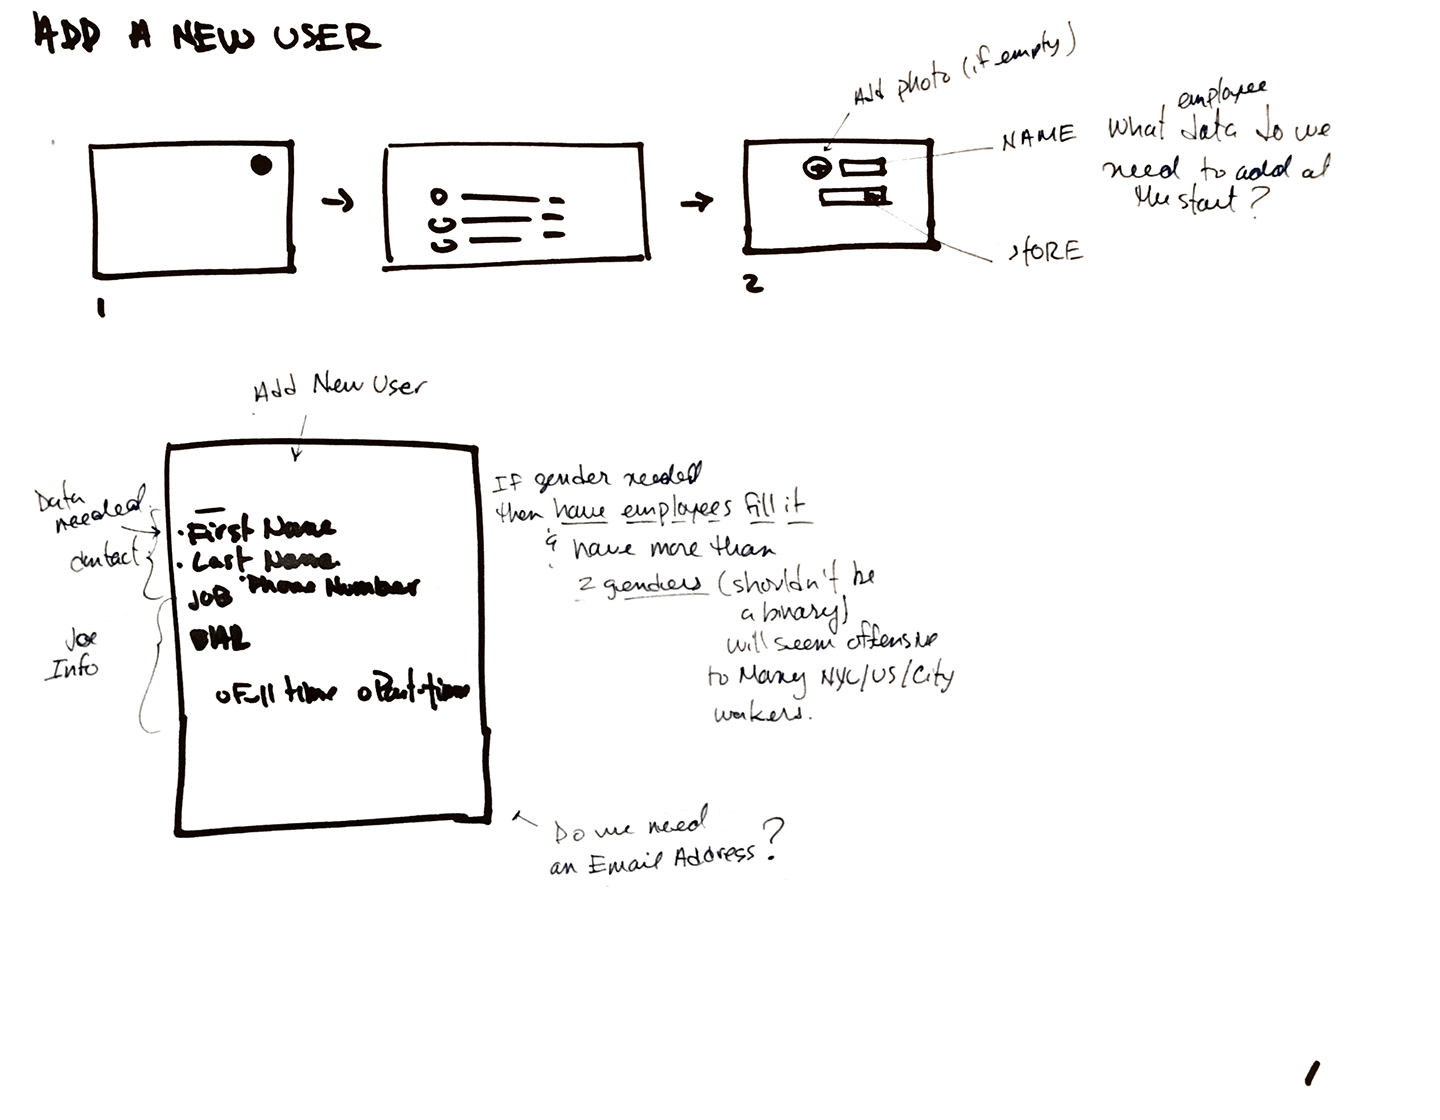 ADD A NEW USER
Add photo (if empty)
NAME
employee
What data do we
need to add at
the start?
STORE
1
2
Add New User
Data
needed
contact
• First Name
• Last Name
• Phone Number
JOB
Job
Info
o Full time o Part-time
If gender needed
then have employees fill it
& have more than
2 genders (shouldn't be
a binary)
will seem offensive
to Many NYC/US/City
workers.
Do we need
an Email Address?
1